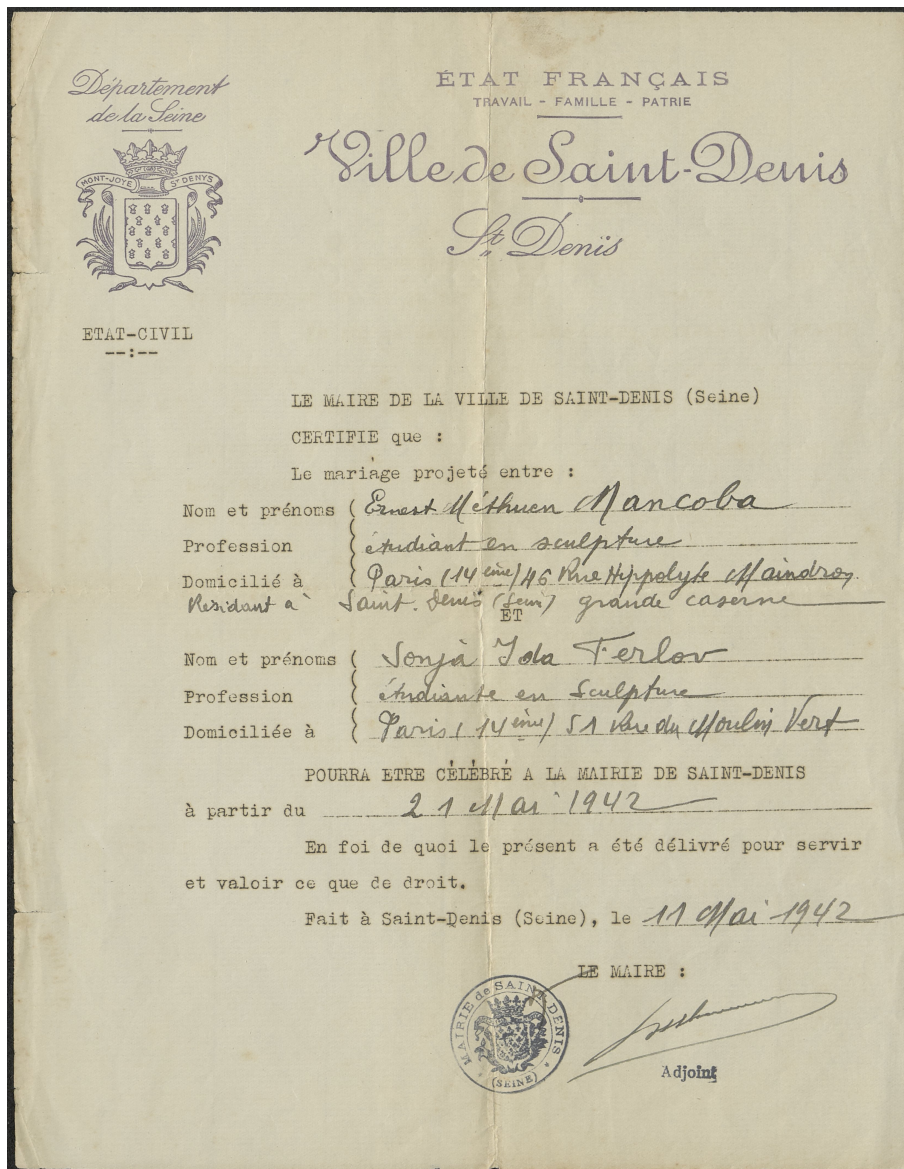 Département
de la Seine
MONT-JOYE St DENYS
ÉTAT FRANÇAIS
TRAVAIL - FAMILLE - PATRIE
Ville de Saint-Denis
St Denis
ETAT-CIVIL
--:--
LE MAIRE DE LA VILLE DE SAINT-DENIS (Seine)
CERTIFIE que :
Le mariage projeté entre :
Nom et prénoms ( Ernest Méthuen Mancoba
Profession ( étudiant en sculpture
Domicilié à ( Paris (14 ème) 46 Rue Hippolyte Maindron
Résidant à Saint-Denis (Seine) grande caserne
ET
Nom et prénoms ( Sonja Ida Ferlov
Profession ( étudiante en Sculpture
Domiciliée à ( Paris (14 ème) 51 Rue du Moulin Vert
POURRA ETRE CÉLÉBRÉ A LA MAIRIE DE SAINT-DENIS
à partir du 21 Mai 1942
En foi de quoi le présent a été délivré pour servir
et valoir ce que de droit.
Fait à Saint-Denis (Seine), le 11 Mai 1942
LE MAIRE :
MAIRIE de SAINT-DENIS
(SEINE)
Adjoint